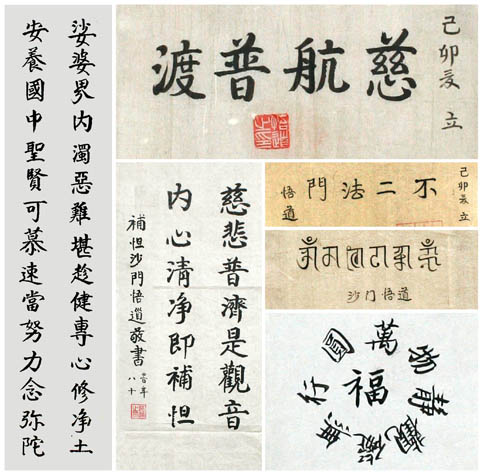 娑婆界内濁惡難堪趁健專心修净土
安養國中聖賢可慕速當努力念弥陀
己卯夏立
慈航普渡
慈悲普濟是觀音
内心清净即補怛
補怛沙門悟道敬書
年八十
己卯立
不二法門
悟道
沙门悟道
圓
萬
静
觀
無
行
福